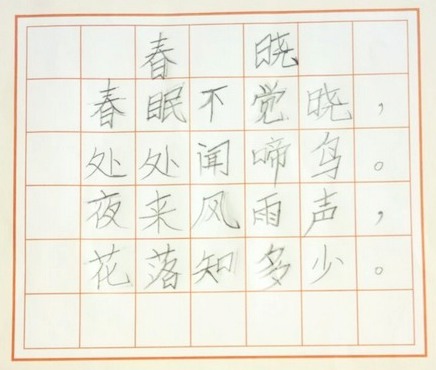 春晓
春眠不觉晓，
处处闻啼鸟。
夜来风雨声，
花落知多少。